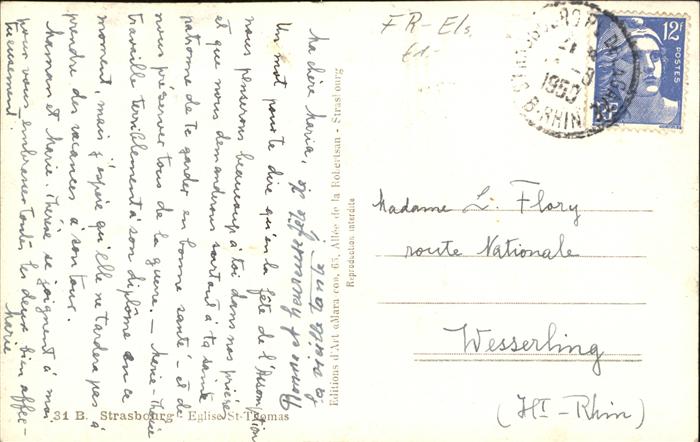 FR-Els
12F
POSTES
RF
1950
B-RHIN
Ma chère Maria,
Un mot pour te dire qu'en la fête de l'Assomption
nous penserons beaucoup à toi dans nos prières
et que nous demanderons surtout à ta sainte
patronne de te garder en bonne santé - et de
nous préserver tous de la guerre. - Marie-Thérèse
travaille terriblement à son diplôme en ce
moment, mais j'espère qu'elle ne tardera pas à
prendre des vacances à son tour.
Maman et Marie-Thérèse se joignent à moi
pour vous embrasser toutes les deux bien affec-
tueusement.
Marie
Editions d'Art aMara coo, 65, Allée de la Robertsau - Strasbourg
Reproduction interdite
Madame L. Flory
route Nationale
Wesserling
(Ht-Rhin)
31 B. Strasbourg - Eglise St-Thomas